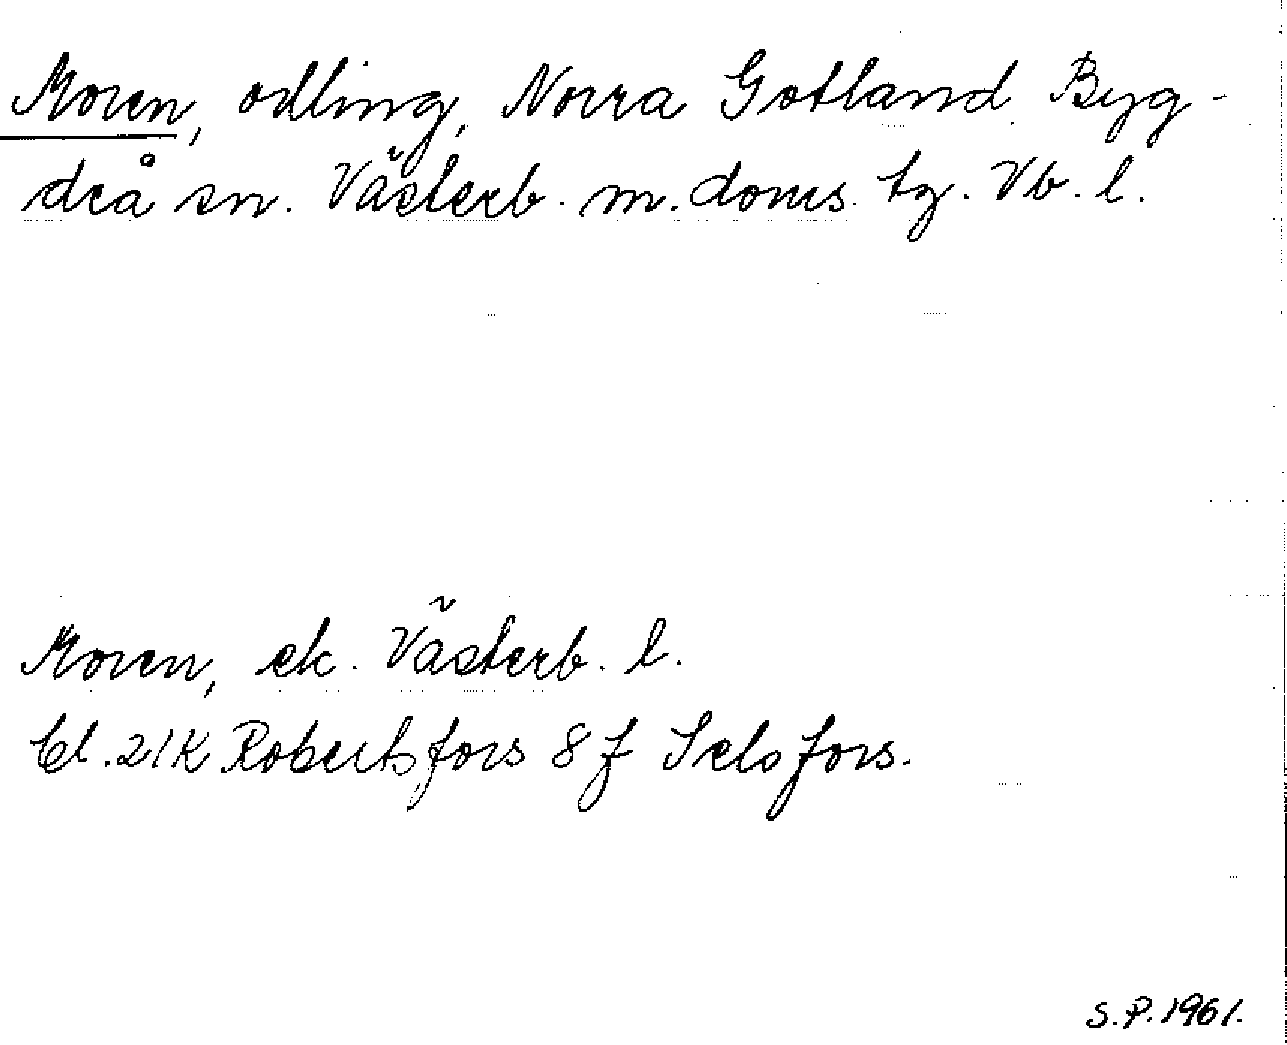 Moren, odling, Norra Gotland Byg-
deå sn. Västerb. m. doms. tg. Vb. l.
Moren, ek. Västerb. l.
bl. 21K Robertsfors 8f Selsfors.
S.P. 1961.